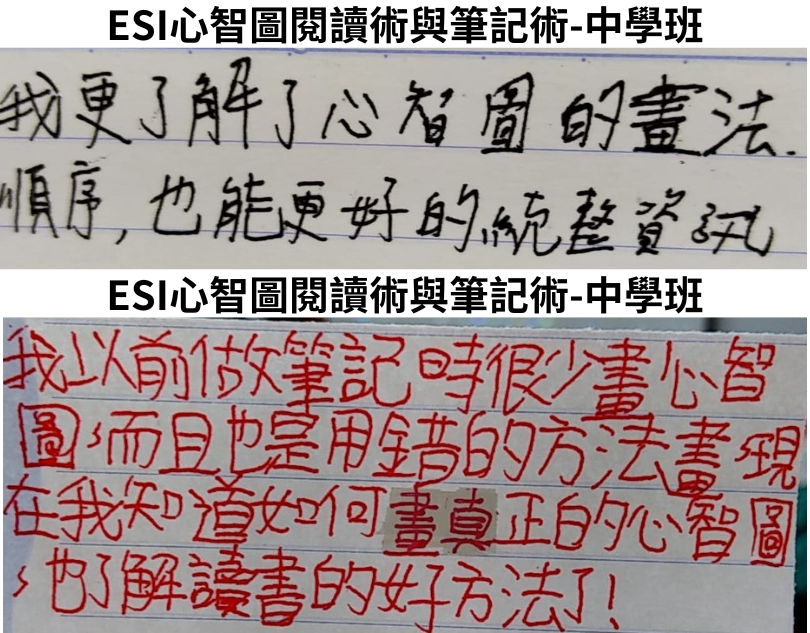 ESI心智圖閱讀術與筆記術-中學班
我更了解了心智圖的畫法.
順序,也能更好的統整資訊
ESI心智圖閱讀術與筆記術-中學班
我以前做筆記時很少畫心智
圖,而且也是用錯的方法畫,現
在我知道如何畫真正的心智圖
,也了解讀書的好方法了!